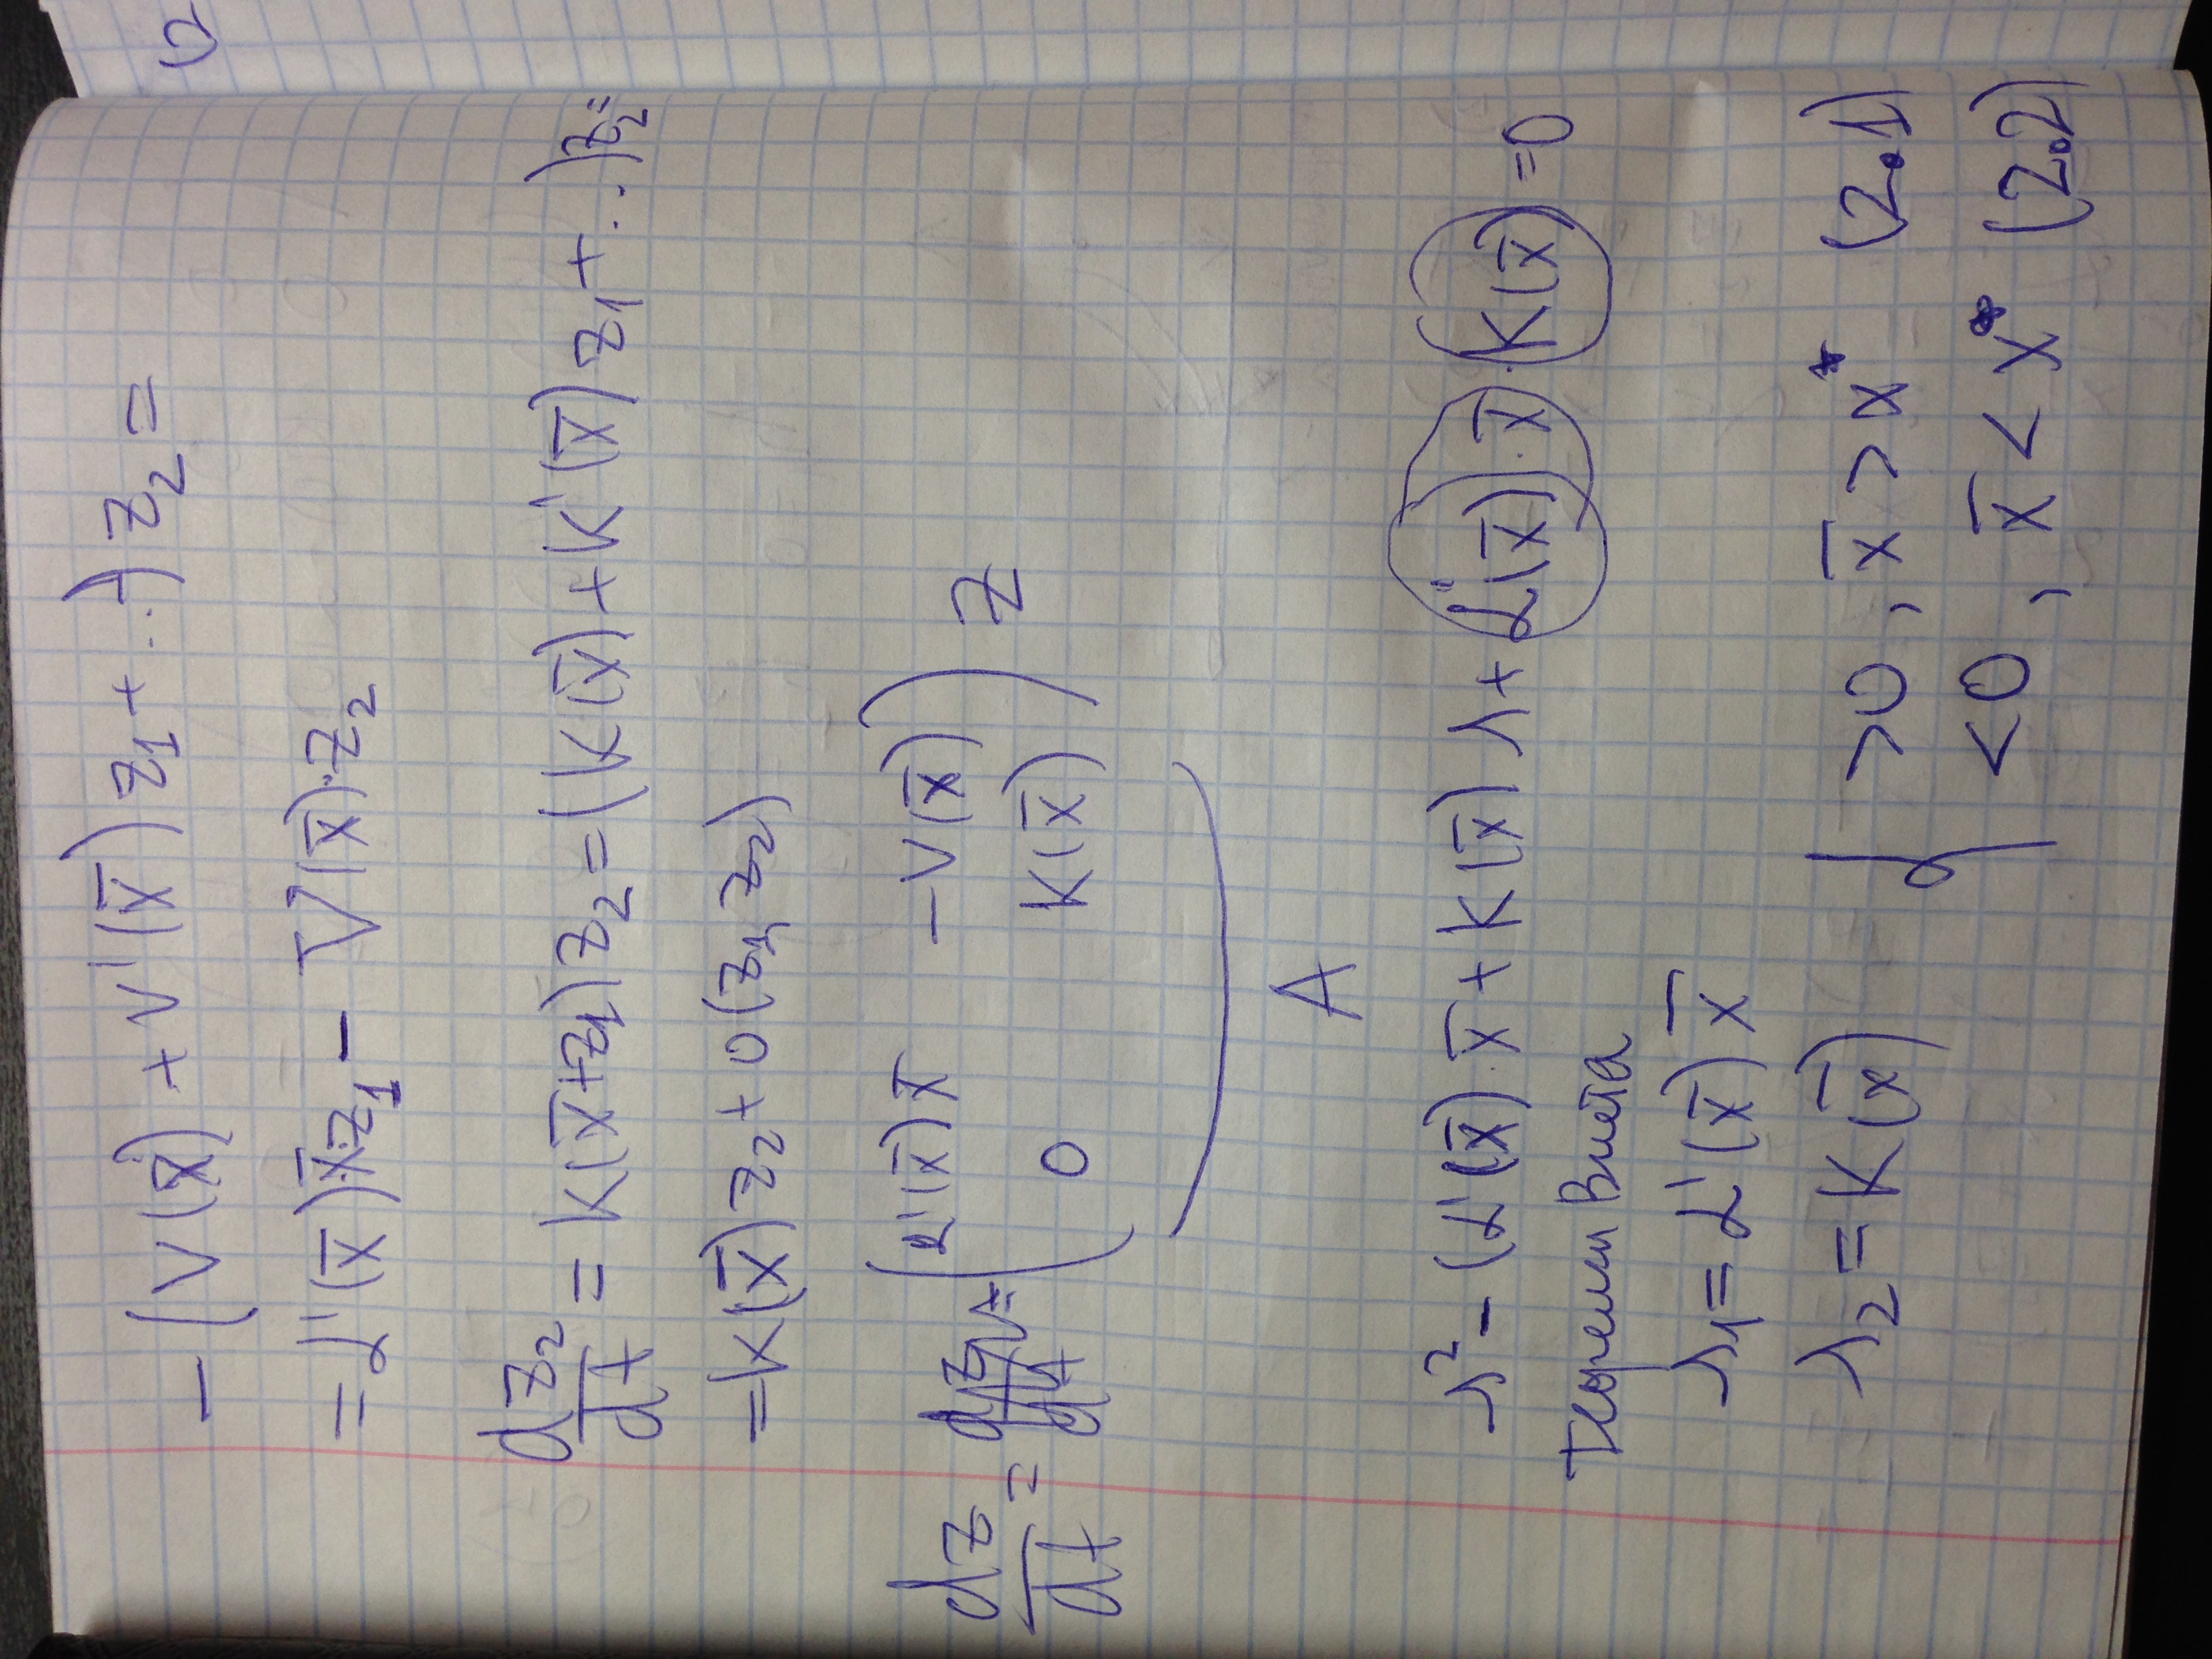 − (V(x̄) + V'(x̄) z₁ + ...) z₂ =
= α'(x̄) x̄ · z₁ − V(x̄) · z₂
dz₂/dt = K(x̄+z₁) z₂ = (K(x̄) + K'(x̄) z₁ + ...) z₂ =
= K(x̄) z₂ + 0(z₁, z₂)
dz/dt = ( α'(x̄) x̄ −V(x̄) ) z
0 K(x̄)
A
λ² − (α'(x̄) · x̄ + K(x̄)) λ + α'(x̄) · x̄ · K(x̄) = 0
Теорема Виета
λ₁ = α'(x̄) x̄
λ₂ = K(x̄) { > 0, x̄ > x* (2.1)
< 0, x̄ < x* (2.2)